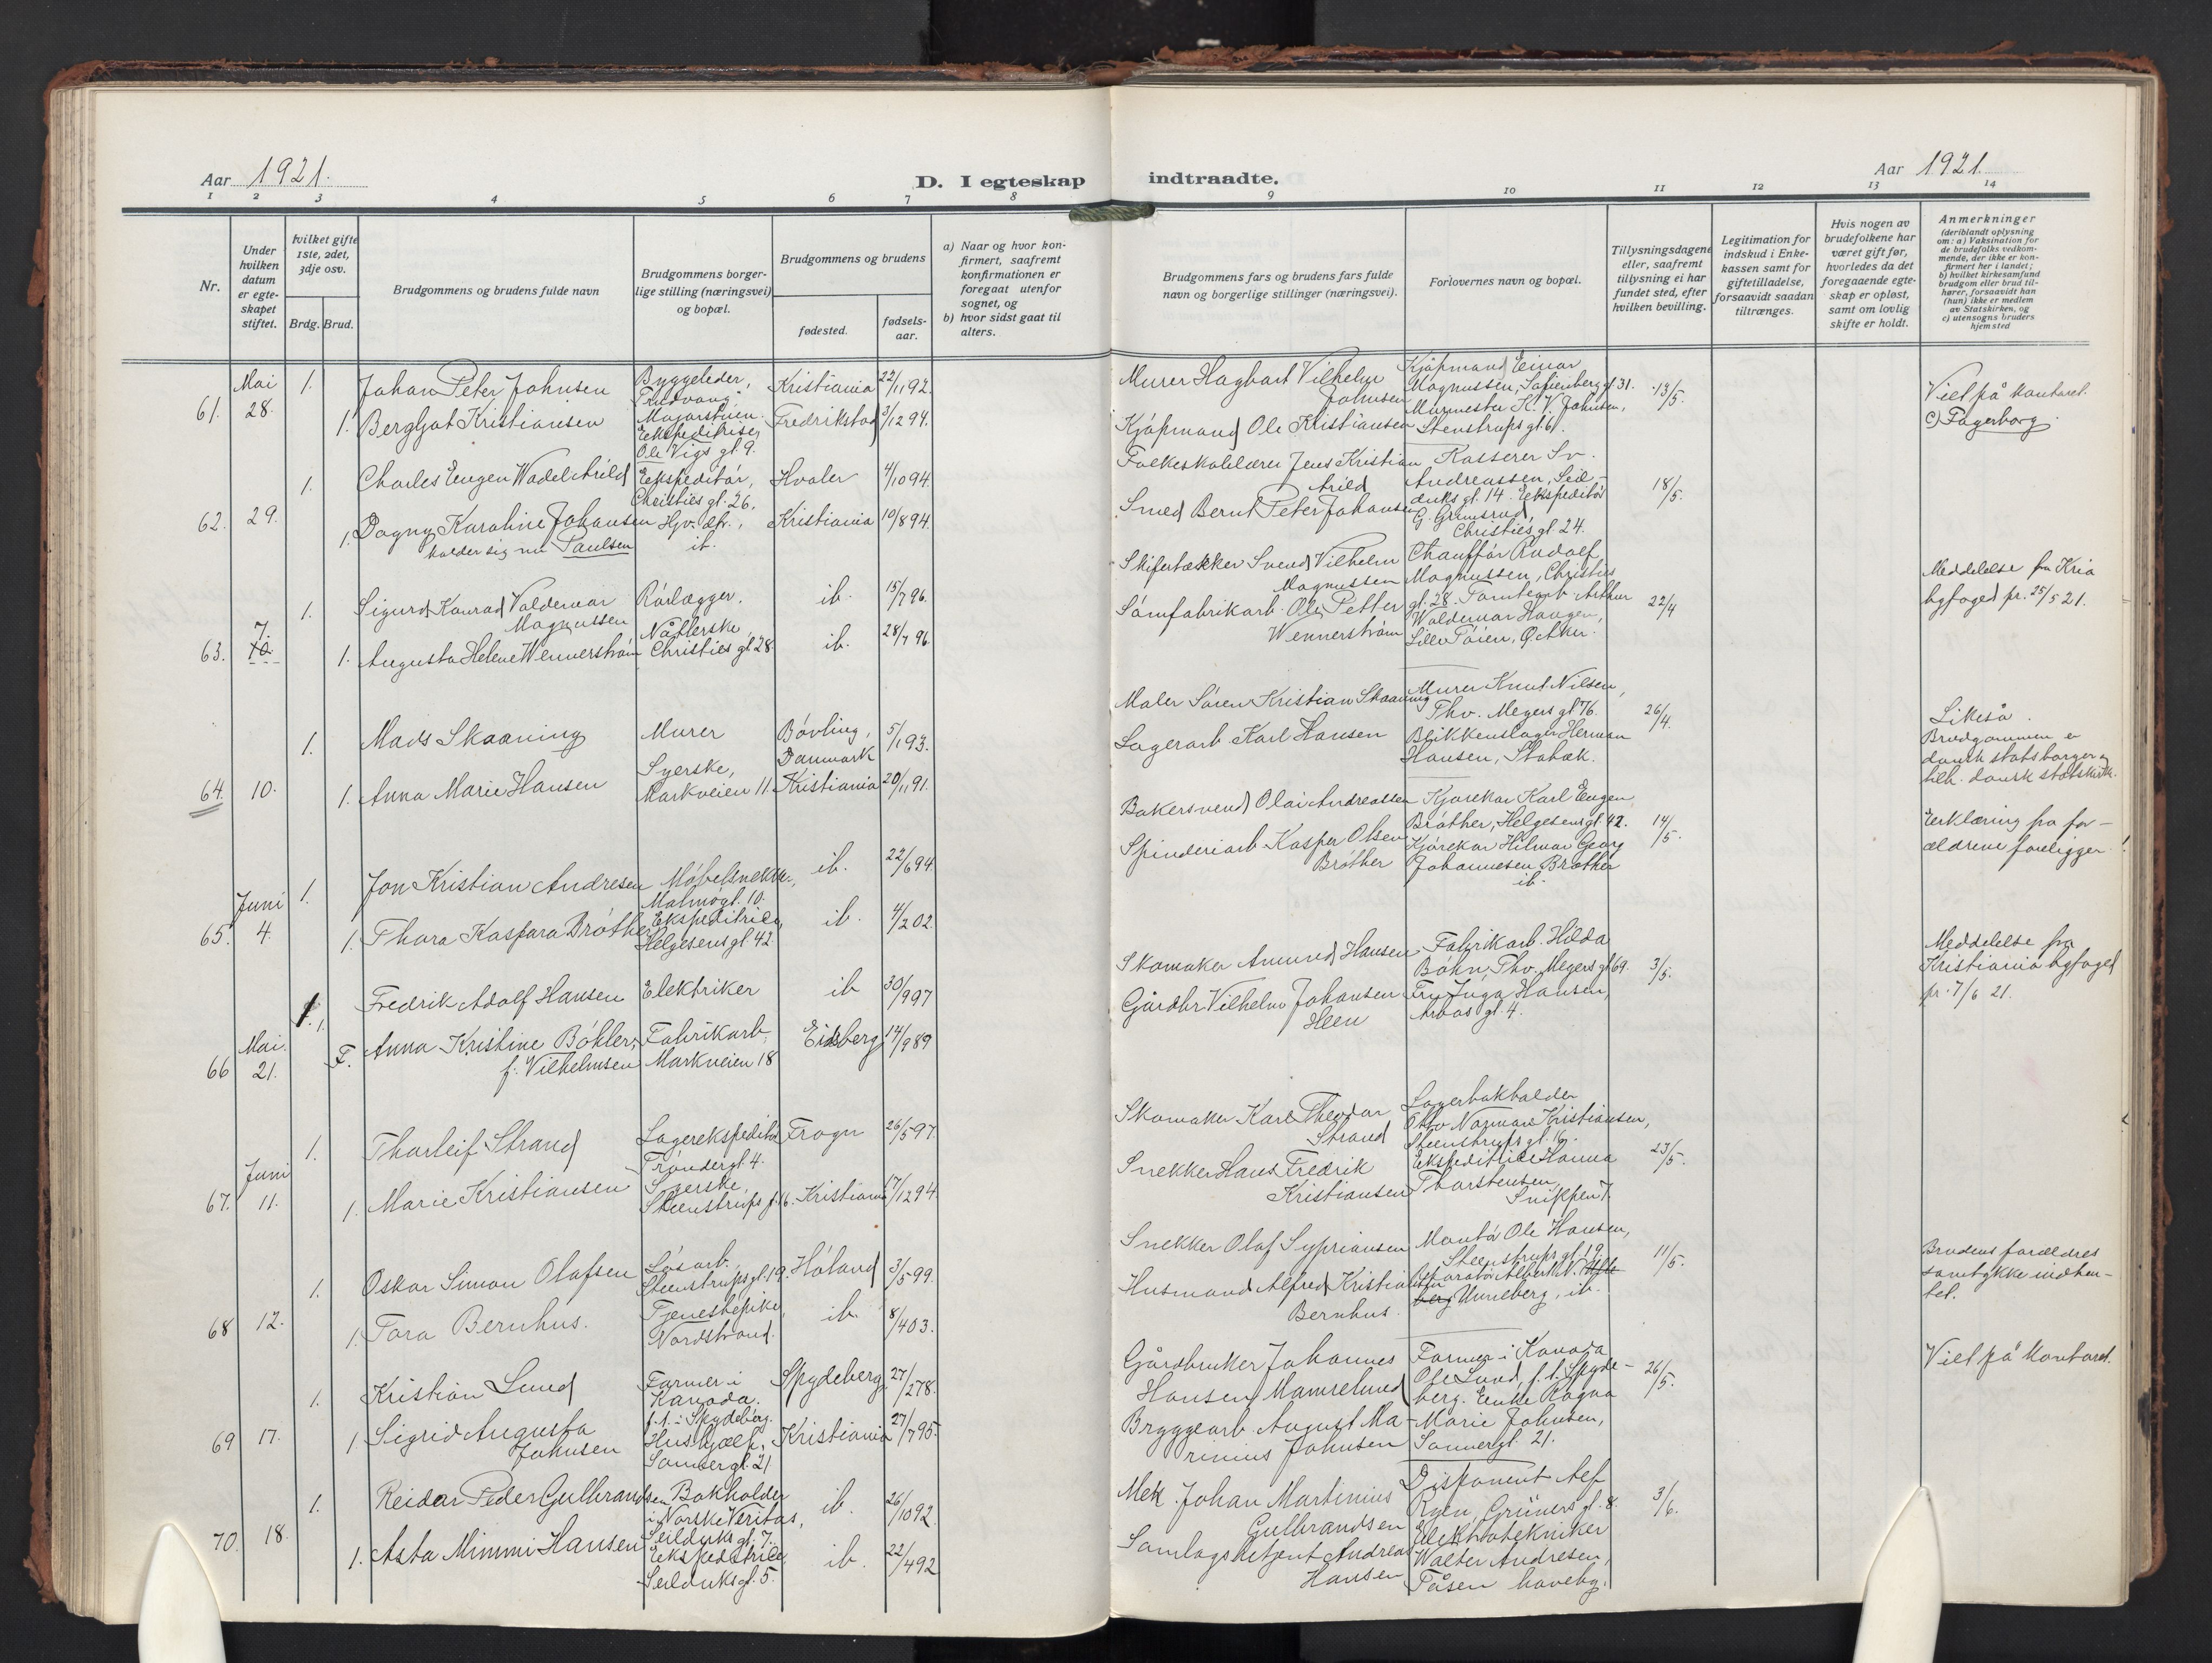 Aar 1921.
D. I egteskap
indtraadte.
Aar 1921.
1 2 3 4 5 6 7 8 9 10 11 12 13 14
Nr.
Under hvilken datum er egteskapet stiftet.
hvilket gifte 1ste, 2det, 3dje osv.
Brdg. Brud.
Brudgommens og brudens fulde navn
Brudgommens borgerlige stilling (næringsvei) og bopæl.
Brudgommens og brudens
fødested.
fødselsaar.
a) Naar og hvor konfirmert, saafremt konfirmationen er foregaat utenfor sognet, og
b) hvor sidst gaat til alters.
Brudgommens fars og brudens fars fulde navn og borgerlige stillinger (næringsvei).
Forlovernes navn og bopæl.
Tillysningsdagene eller, saafremt tillysning ei har fundet sted, efter hvilken bevilling.
Legitimation for indskud i Enkekassen samt for giftetilladelse, forsaavidt saadan tiltrænges.
Hvis nogen av brudefolkene har været gift før, hvorledes da det foregaaende egteskap er opløst, samt om lovlig skifte er holdt.
Anmerkninger
(deriblandt oplysning om: a) Vaksination for de brudefolks vedkommende, der ikke er konfirmert her i landet; b) hvilket kirkesamfund brudgom eller brud tilhører, forsaavidt han (hun) ikke er medlem av Statskirken, og c) utensogns bruders hjemsted
61. Mai 28.
1. Johan Peter Johnsen
Byggeleder,
Trudvang
Majorstuen.
Kristiania 22/1 92.
1. Bergljot Kristiansen
Ekspeditrise,
Ole Vigs gt. 9.
Fredrikstad 3/12 94.
Murer Hagbart Vilhelm
Johnsen
Kjøpmand Ole Kristiansen
Kjøpmand Einar
Magnussen, Sofienberg gt 31.
Murmester K. V. Johnsen,
Stenstrups gt 61.
13/5.
Viet på kontoret.
c) Fagerborg.
62. 29.
1. Charles Eugen Wadel Arild
Ekspeditør,
Christies gt. 26.
Hvaler 4/10 94
1. Dagny Karoline Johansen
holder sig nu Paulsen
ib.
Kristiania 10/8 94.
Folkeskolelærer Jens Kristian
Arild
Smed Bernt Peter Johansen
Kasserer Sv.
Andreassen, Seilduks gt. 14. Ekspeditør
G. Grimsrud,
Christies gt 24.
18/5.
63. 7.
1. Sigurd Konrad Valdemar
Magnussen
Rørlægger.
ib. 15/7 96.
1. Augusta Helene Wennerstrøm
Nåtlerske
Christies gt 28.
ib. 28/7 96.
Skifertækker Svend Vilhelm
Magnussen
Sømfabrikarb. Ole Petter
Wennerstrøm
Chauffør Rudolf
Magnussen, Christies
gt. 28. Tomtearb Arthur
Woldemar Haugen,
Lille Tøien, Ø. Aker.
22/4
Meddelelse fra Kria
byfoged pr. 25/5 21.
64. 10.
1. Mads Skaaning
Murer
Bøvling,
Danmark
5/1 93.
1. Anna Marie Hansen
Syerske,
Markveien 11.
Kristiania 20/1 91.
Maler Søren Kristian Skaaning
Lagerarb Karl Hansen
Murer Knut Nilsen,
Thv. Meyers gt 76.
Blikkenslager Herman
Hansen, Stabæk.
26/4.
Likeså.
Brudgommen er
dansk statsborger og
tilh. dansk statskirke.
65. Juni 4.
1. Jon Kristian Andresen
Møbelsnekker,
Malmøgt. 10.
ib. 22/6 94
1. Thora Kaspara Brøther
Ekspeditrice,
Helgesens gt 42.
ib. 4/2 02.
Bakersvend Olai Andreassen
Spinderiarb Kasper Olsen
Brøther
Kjørekar Karl Eugen
Brøther, Helgesens gt. 42.
Kjørekar Hilmar Georg
Johannesen Brøther
ib.
14/5.
Erklæring fra forældrene foreligger!
66 Mai. 21.
1. Fredrik Adolf Hansen
Elektriker
ib 30/9 97
F. Anna Kristine Bøhler,
f. Vilhelmsen
Fabrikarb,
Markveien 18
Eidsberg 14/9 89
Skomaker Amund Hansen
Gårdbr Vilhelm Johansen
Heen
Fabrikarb. Hilda
Bøhn, Thv. Meyers gt 69.
Fru Inga Hansen,
Arbos gt. 4.
3/5.
Meddelelse fra
Kristiania byfoged
pr. 7/6 21.
67. Juni 11.
1. Thorleif Strand
Lagerekspeditør
Trøndergt. 4.
Frogn 26/5 97.
1. Marie Kristiansen
Syerske,
Steenstrups gt 16.
Kristiania 17/12 94.
Skomaker Karl Theodor
Strand
Snekker Hans Fredrik
Kristiansen
Lagerbokholder
Otto Norman Kristiansen,
Steenstrups gt. 16.
Ekspeditrice Hanna
Thorstensen,
Snippen 7.
23/5.
68 12.
1. Oskar Simon Olafsen
Løsarb.,
Steenstrups gt. 19.
Høland 3/5 99.
1. Tora Bernhus.
Tjenestepike,
Nordstrand.
ib. 8/4 03.
Snekker Olaf Sypriansen
Husmand Alfred Kristiansen
Bernhus.
Montør Ole Hansen,
Steenstrups gt. 19.
Unneberg, ib.
11/5.
Brudens forældres
samtykke indhentet.
69 17.
1. Kristian Lund
Farmer i
Kanada.
f. t. i Spydeberg.
Spydeberg 27/2 78.
1 Sigrid Augusta
Johnsen
Hushjælp,
Sannergt. 21
Kristiania 27/7 95.
Gårdbruker Johannes
Hansen Mamrelund
Bryggearb. August Marinius Johnsen
Farmer i Kanada
Ole Lund, f. t. Spydeberg. Enke Ragna
Marie Johnsen,
Sannergt. 21.
26/5.
Viet på kontoret.
70. 18.
1. Reidar Peder Gulbrandsen
Bokholder
i Norske Veritas,
Seilduks gt. 7.
ib. 26/10 92.
1. Asta Mimmi Hansen
Ekspeditrice
Seilduksgt. 5.
ib. 22/4 92
Mek. Johan Martinius
Gulbrandsen
Samlagsbetjent Andreas
Hansen
Disponent Alf
Ryen, Grüners gt. 8.
Elektrotekniker
Walter Andresen,
Tåsen haveby.
3/6.